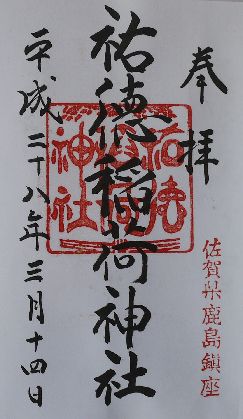 奉拝
佐賀県鹿島鎮座
祐徳稲荷神社
祐徳
稲荷
神社
平成二十八年三月十四日